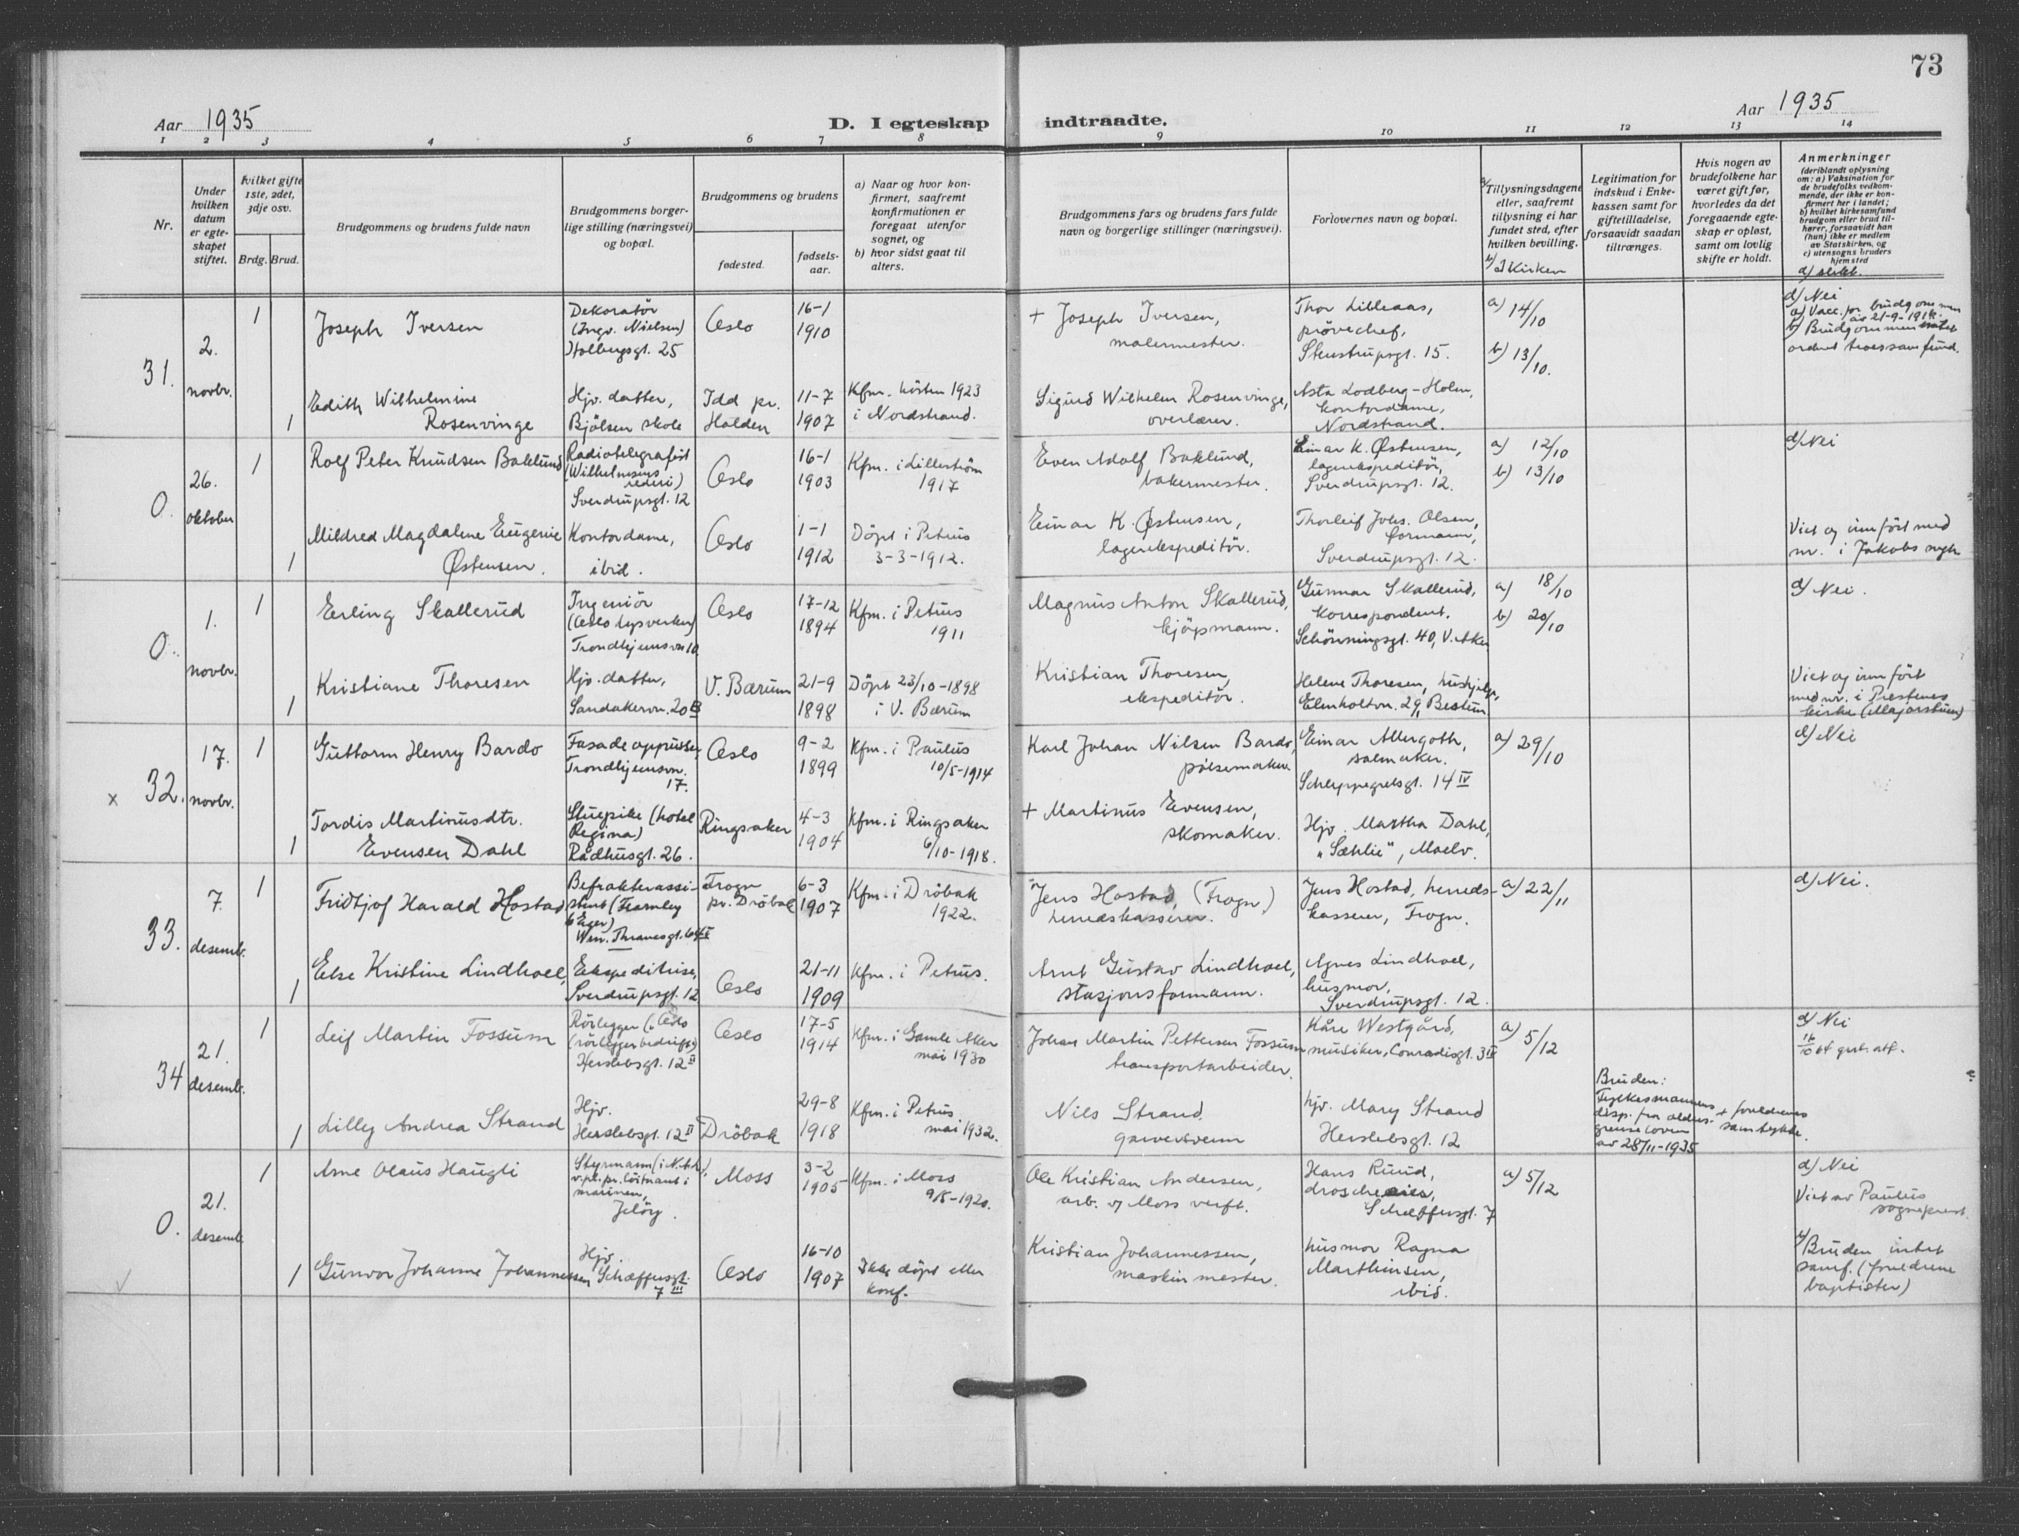 73
Aar 1935
D. I egteskap indtraadte.
Aar 1935
1 2 3 4 5 6 7 8 9 10 11 12 13 14
Nr.
Under hvilken datum er egteskapet stiftet.
Hvilket gifte 1ste, 2det, 3dje osv.
Brdg. Brud.
Brudgommens og brudens fulde navn
Brudgommens borgerlige stilling (næringsvei) og bopæl.
Brudgommens og brudens
fødested.
fødselsaar.
a) Naar og hvor konfirmert, saafremt konfirmationen er foregaat utenfor sognet, og
b) hvor sidst gaat til alters.
Brudgommens fars og brudens fars fulde navn og borgerlige stillinger (næringsvei).
Forlovernes navn og bopæl.
a) Tillysningsdagene eller, saafremt tillysning ei har fundet sted, efter hvilken bevilling.
b) I Kirken
Legitimation for indskud i Enkekassen samt for giftetilladelse, forsaavidt saadan tiltrænges.
Hvis nogen av brudefolkene har været gift før, hvorledes da det foregaaende egteskap er opløst, samt om lovlig skifte er holdt.
Anmerkninger
(deriblandt oplysning om: a) Vaksination for de brudefolks vedkommende, der ikke er konfirmert her i landet; b) hvilket kirkesamfund brudgom eller brud tilhører, forsaavidt han (hun) ikke er medlem av Statskirken, og c) utensogns bruders hjemsted
d) slekt.
31.
2.
novbr.
1
Joseph Iversen
Dekoratör
(Ingv. Nielsen)
Holbergsgt. 25
Oslo
16-1
1910
+ Joseph Iversen,
malermester.
Thor Lilleaas,
prövechef,
Stenstrupsgt. 15.
a) 14/10
b) 13/10.
d) Nei
a) Vacc. for brudgommen
av 21-9-1914.
b) Brudgommen intet
ordnet troessamfund.
1
Edith Wilhelmine
Rosenvinge
Hjv. datter,
Bjölsen skole
Idd pr.
Halden
11-7
1907
Kfm. hösten 1923
i Nordstrand.
Sigurd Wilhelm Rosenvinge,
overlærer.
Asta Lodberg-Holm,
kontordame,
Nordstrand.
0.
26.
oktober
1
Rolf Peter Knudsen Baklund
Radiotelegrafist
(Wilhelmsens
rederi)
Sverdrupsgt. 12
Oslo
16-1
1903
Kfm. i Lilleström
1917
Even Adolf Baklund,
bakermester.
Einar K. Østensen,
lagerekspeditör,
Sverdrupsgt. 12.
a) 12/10
b) 13/10
d) Nei
1
Mildred Magdalene Eugenie
Østensen.
Kontordame,
ibid.
Oslo
1-1
1912
Döpt i Petrus
3-3-1912.
Einar K. Østensen,
lagerekspeditör.
Thorleif Johs. Olsen,
formann,
Sverdrupsgt. 12.
Viet og innfört med
nr. i Jakobs
0.
1.
novbr.
1
Erling Skallerud
Ingeniör
(Oslo lysverker)
Trondhjemsvn 10.
Oslo
17-12
1894
Kfm. i Petrus
1911
Magnus Anton Skallerud,
kjöpmann.
Gunnar Skallerud,
korrespondent.
Schönningsgt. 40, V. Aker
a) 18/10
b) 20/10
d) Nei.
1
Kristiane Thoresen
Hjv. datter,
Sandakervn. 20 B
V. Bærum
21-9
1898
Döpt 23/10-1898
i V. Bærum
Kristian Thoresen,
ekspeditör.
Helene Thoresen, hushjelp,
Elmholtvn. 29, Bestum
Viet og innfört
med nr. i Prestenes
kirke (Majorstuen)
x 32.
17.
novbr.
1
Guttorm Henry Bardo
Fasadeoppusser,
Trondhjemsvn.
17.
Oslo
9-2
1899
Kfm. i Paulus
10/5-1914
Karl Johan Nilsen Bardo,
pölsemaker.
Einar Allergoth,
salmaker.
Schleppegrelsgt. 14 IV
a) 29/10
d) Nei
1
Tordis Martinusdtr.
Evensen Dahl
Stuepike (hotel
Regina)
Rådhusgt. 26.
Ringsaker
4-3
1904
Kfm. i Ringsaker
6/10-1918.
+ Martinus Evensen,
skomaker.
Hjv. Martha Dahl,
"Sæhlie", Moelv.
33.
7.
desemb.
1
Fridtjof Harald Hostad
Befrakterassistent (Fearnley
& Eger)
Wm. Thranesgt. 64 V
Frogn
pr. Dröbak
6-3
1907
Kfm. i Dröbak
1922.
Jens Hostad, (Frogn)
herredskasserer.
Jens Hostad, herredskasserer, Frogn.
a) 22/11
d) Nei.
1
Else Kristine Lindhoel,
Ekspeditrise,
Sverdrupsgt. 12
Oslo
21-11
1909
Kfm. i Petrus.
Arnt Gustav Lindhoel,
stasjonsformann.
Agnes Lindhoel,
husmor,
Sverdrupsgt. 12.
34
21.
desemb.
1
Leif Martin Fossum
Rörlegger (i Oslo
rörleggerbedrift)
Herslebsgt. 12 II
Oslo
17-5
1914
Kfm. i Gamle Aker
mai 1930
Johan Martin Pettersen Fossum
transportarbeider.
Kåre Westgård,
musiker, Conradisgt. 3 IV
a) 5/12
d) Nei
1
Lilly Andrea Strand
Hjv.
Herslebsgt. 12 II
Dröbak
29-8
1918
Kfm. i Petrus
mai 1932.
Nils Strand
garversvenn
hjv. Mary Strand
Herslebsgt. 12
Bruden:
Fylkesmannens
disp. fra aldersgrense loven
av 28/11-1935
+ foreldrenes
samtykke.
0.
21.
desemb.
1
Arne Olaus Haugli
Styrmann
v.pl. pr. löitnant i
marinen,
Jelöy.
Moss
3-2
1905
Kfm. i Moss
9/5-1920.
Ole Kristian Andersen,
arb. v/ Moss verft.
Hans Ruud,
droscheeier,
Schæffersgt. 7
a) 5/12
d) Nei
Viet av Paulus
sogneprest.
1
Gunvor Johanne Johannessen
Hjv.
Schæffersgt.
7 III
Oslo
16-10
1907
Ikke döpt eller
konf.
Kristian Johannessen,
maskinmester.
husmor Ragna
Marthinsen,
ibid.
b) Bruden intet
samf. (foreldrene
baptister)